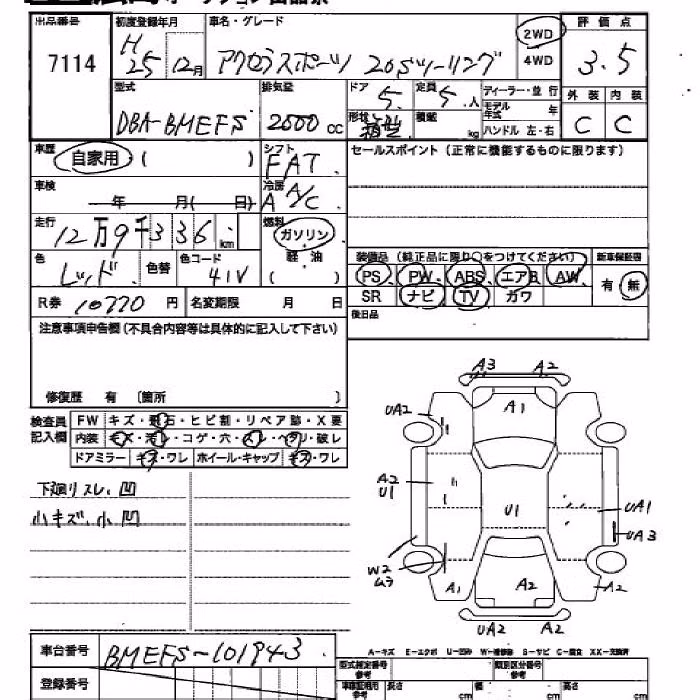 出品番号 初度登録年月 車名・グレード 2WD 評価点
7114 H 25 12月 アクセラスポーツ 20Sツーリング 4WD 3.5
型式 排気量 ドア 定員 ディーラー・並行 外装 内装
DBA-BMEFS 2000 cc 5 5人 モデル年式 年 C C
形状 積載 kg ハンドル 左・右
車歴 自家用 ( ) シフト FAT セールスポイント (正常に機能するものに限ります)
車検 年 月( 日) 冷房 A A/C
走行 12万9千336 km 燃料 ガソリン
軽油
( )
色 レッド 色替 色コード 41V
装備品 (純正品に限り○をつけてください) 新車保証書
PS PW ABS エアB AW 有・無
SR ナビ TV カワ
R券 10770 円 名変期限 月 日
後日品
注意事項申告欄 (不具合内容等は具体的に記入して下さい)
修復歴 有 〔箇所 〕
検査員記入欄 FW キズ・飛石・ヒビ割・リペア跡・X要
内装 キズ・汚レ・コゲ・穴・スレ・ヘタリ・破レ
ドアミラー キズ・ワレ ホイール・キャップ キズ・ワレ
下廻りスレ、凹
小キズ、小凹
A3 A2
UA2 A1
A2
U1 U1 UA1
UA3
W2
A1 A2 A2
UA2 A2
A-キズ E-エクボ U-凹み W-補修跡 S-サビ C-腐食 XX-交換済
車台番号 BMEFS-101943
登録番号
型式指定番号 参考 類別区分番号 参考
車庫証明用 参考 長さ cm 幅 cm 高さ cm